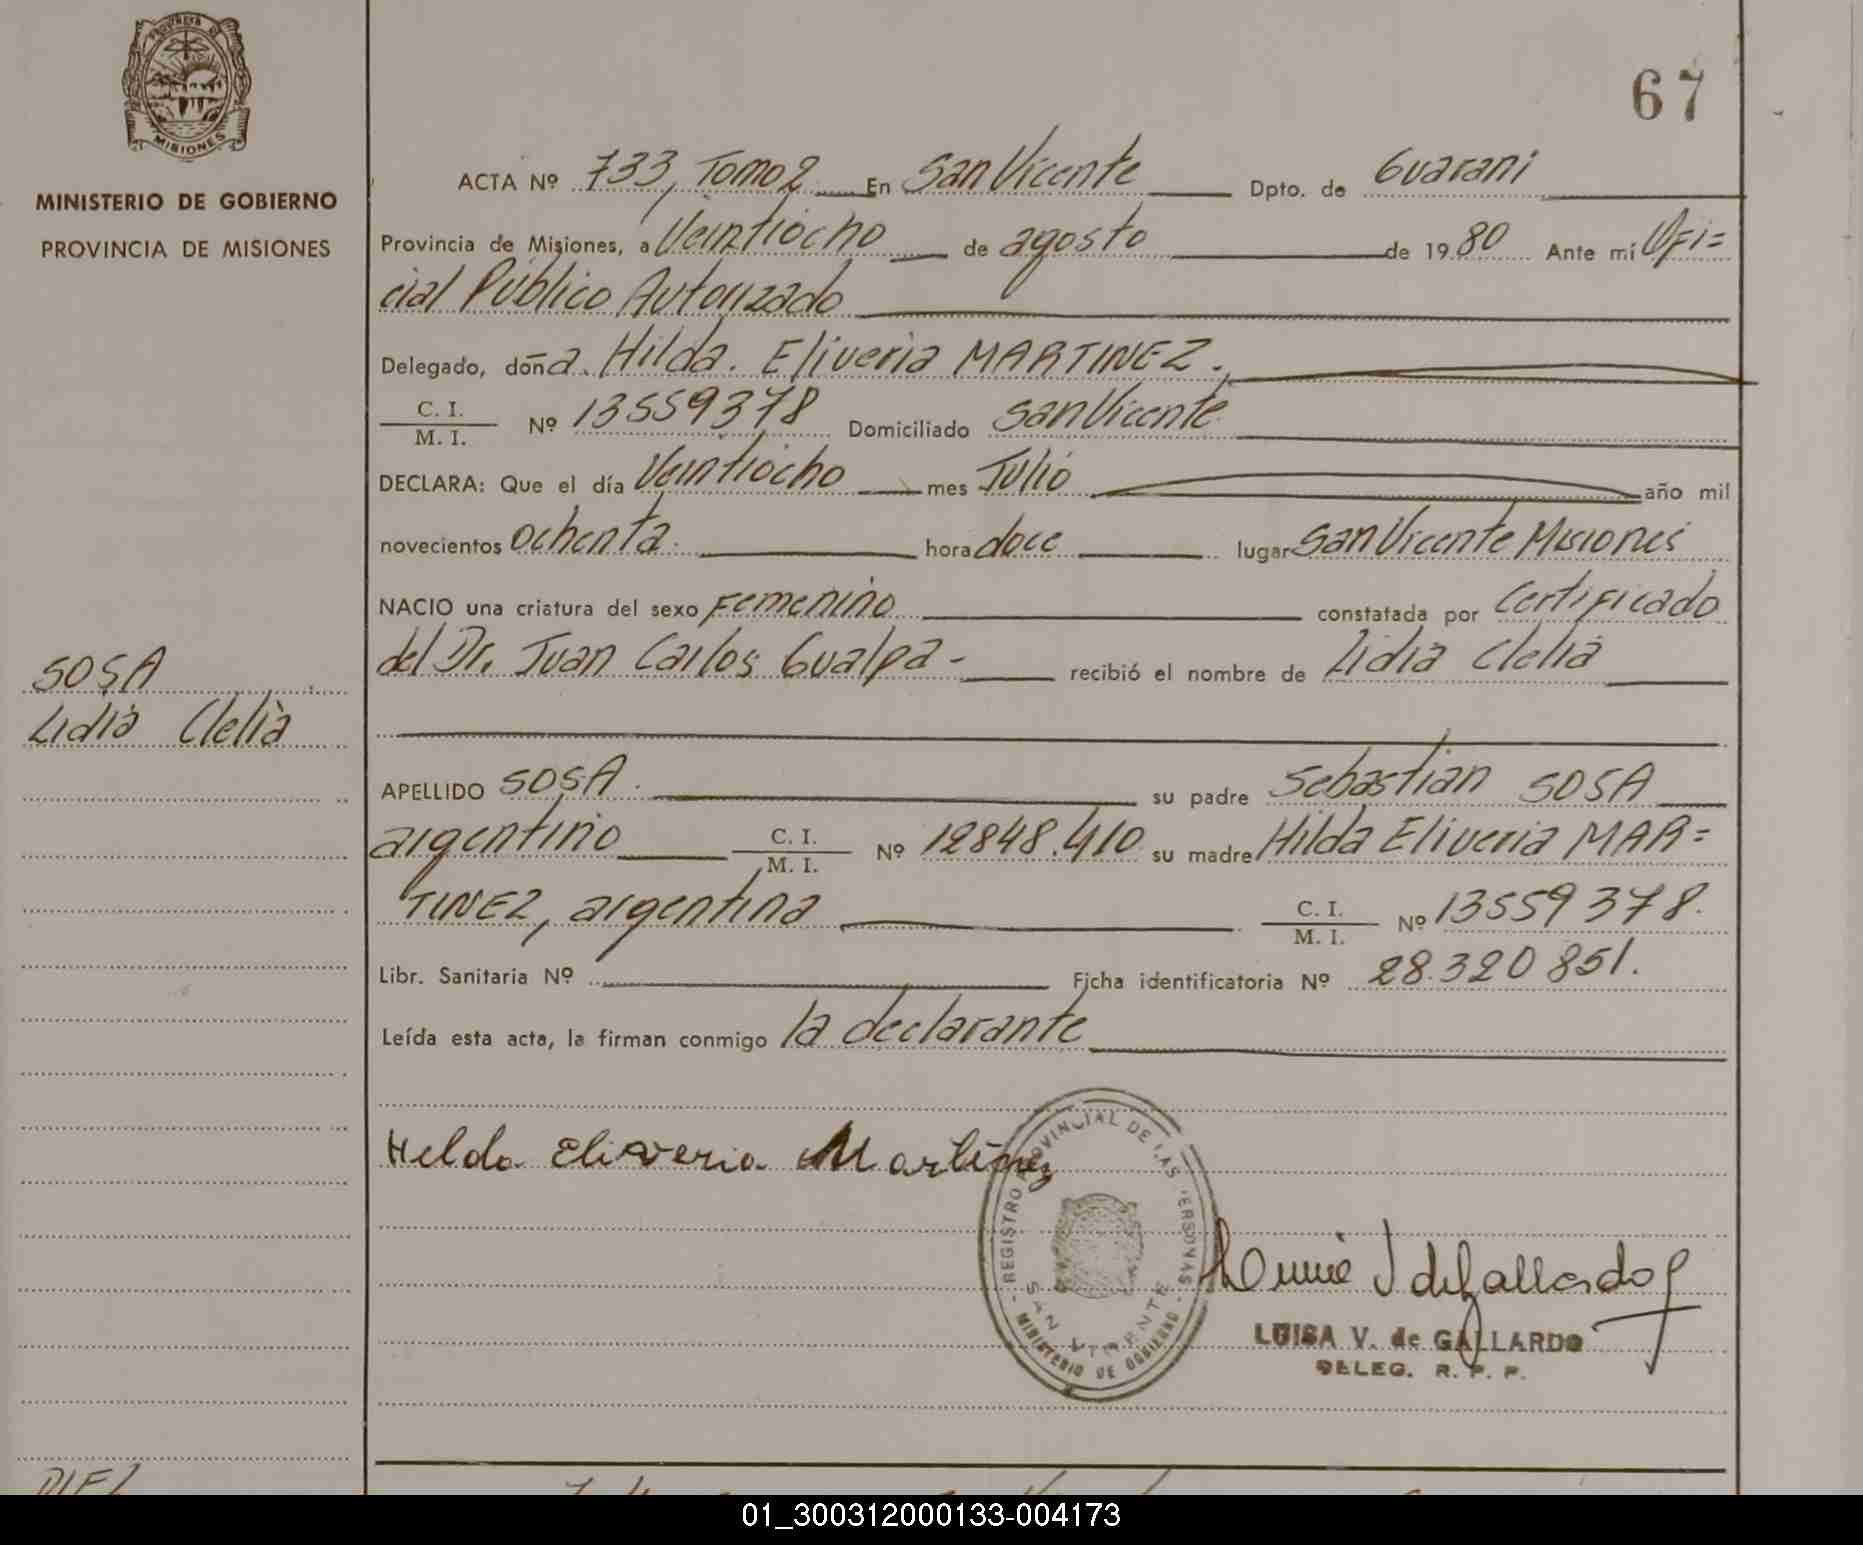 67
PROVINCIA DE
MISIONES
MINISTERIO DE GOBIERNO
PROVINCIA DE MISIONES
ACTA Nº 733, Tomo 2 En San Vicente Dpto. de Guarani
Provincia de Misiones, a Veintiocho de agosto de 1980 Ante mí Ofi=
cial Público Autorizado
Delegado, doña. Hilda. Eliveria MARTINEZ.
C. I.
M. I. Nº 13559378 Domiciliado San Vicente
DECLARA: Que el día Veintiocho mes Julio año mil
novecientos ochenta hora doce lugar San Vicente Misiones
NACIO una criatura del sexo Femenino constatada por Certificado
del Dr. Juan Carlos Gualpa - recibió el nombre de Lidia Clelia
SOSA
Lidia Clelia
APELLIDO SOSA. su padre Sebastian SOSA
argentino C. I.
M. I. Nº 12848.410 su madre Hilda Eliveria MAR=
TINEZ, argentina C. I.
M. I. Nº 13559378.
Libr. Sanitaria Nº Ficha identificatoria Nº 28.320 851.
Leída esta acta, la firman conmigo la declarante
Hilda Eliveria Martinez
REGISTRO PROVINCIAL DE LAS PERSONAS
SAN VICENTE
MINISTERIO DE GOBIERNO
LUISA V. de GALLARDO
DELEG. R. P. P.
01_300312000133-004173